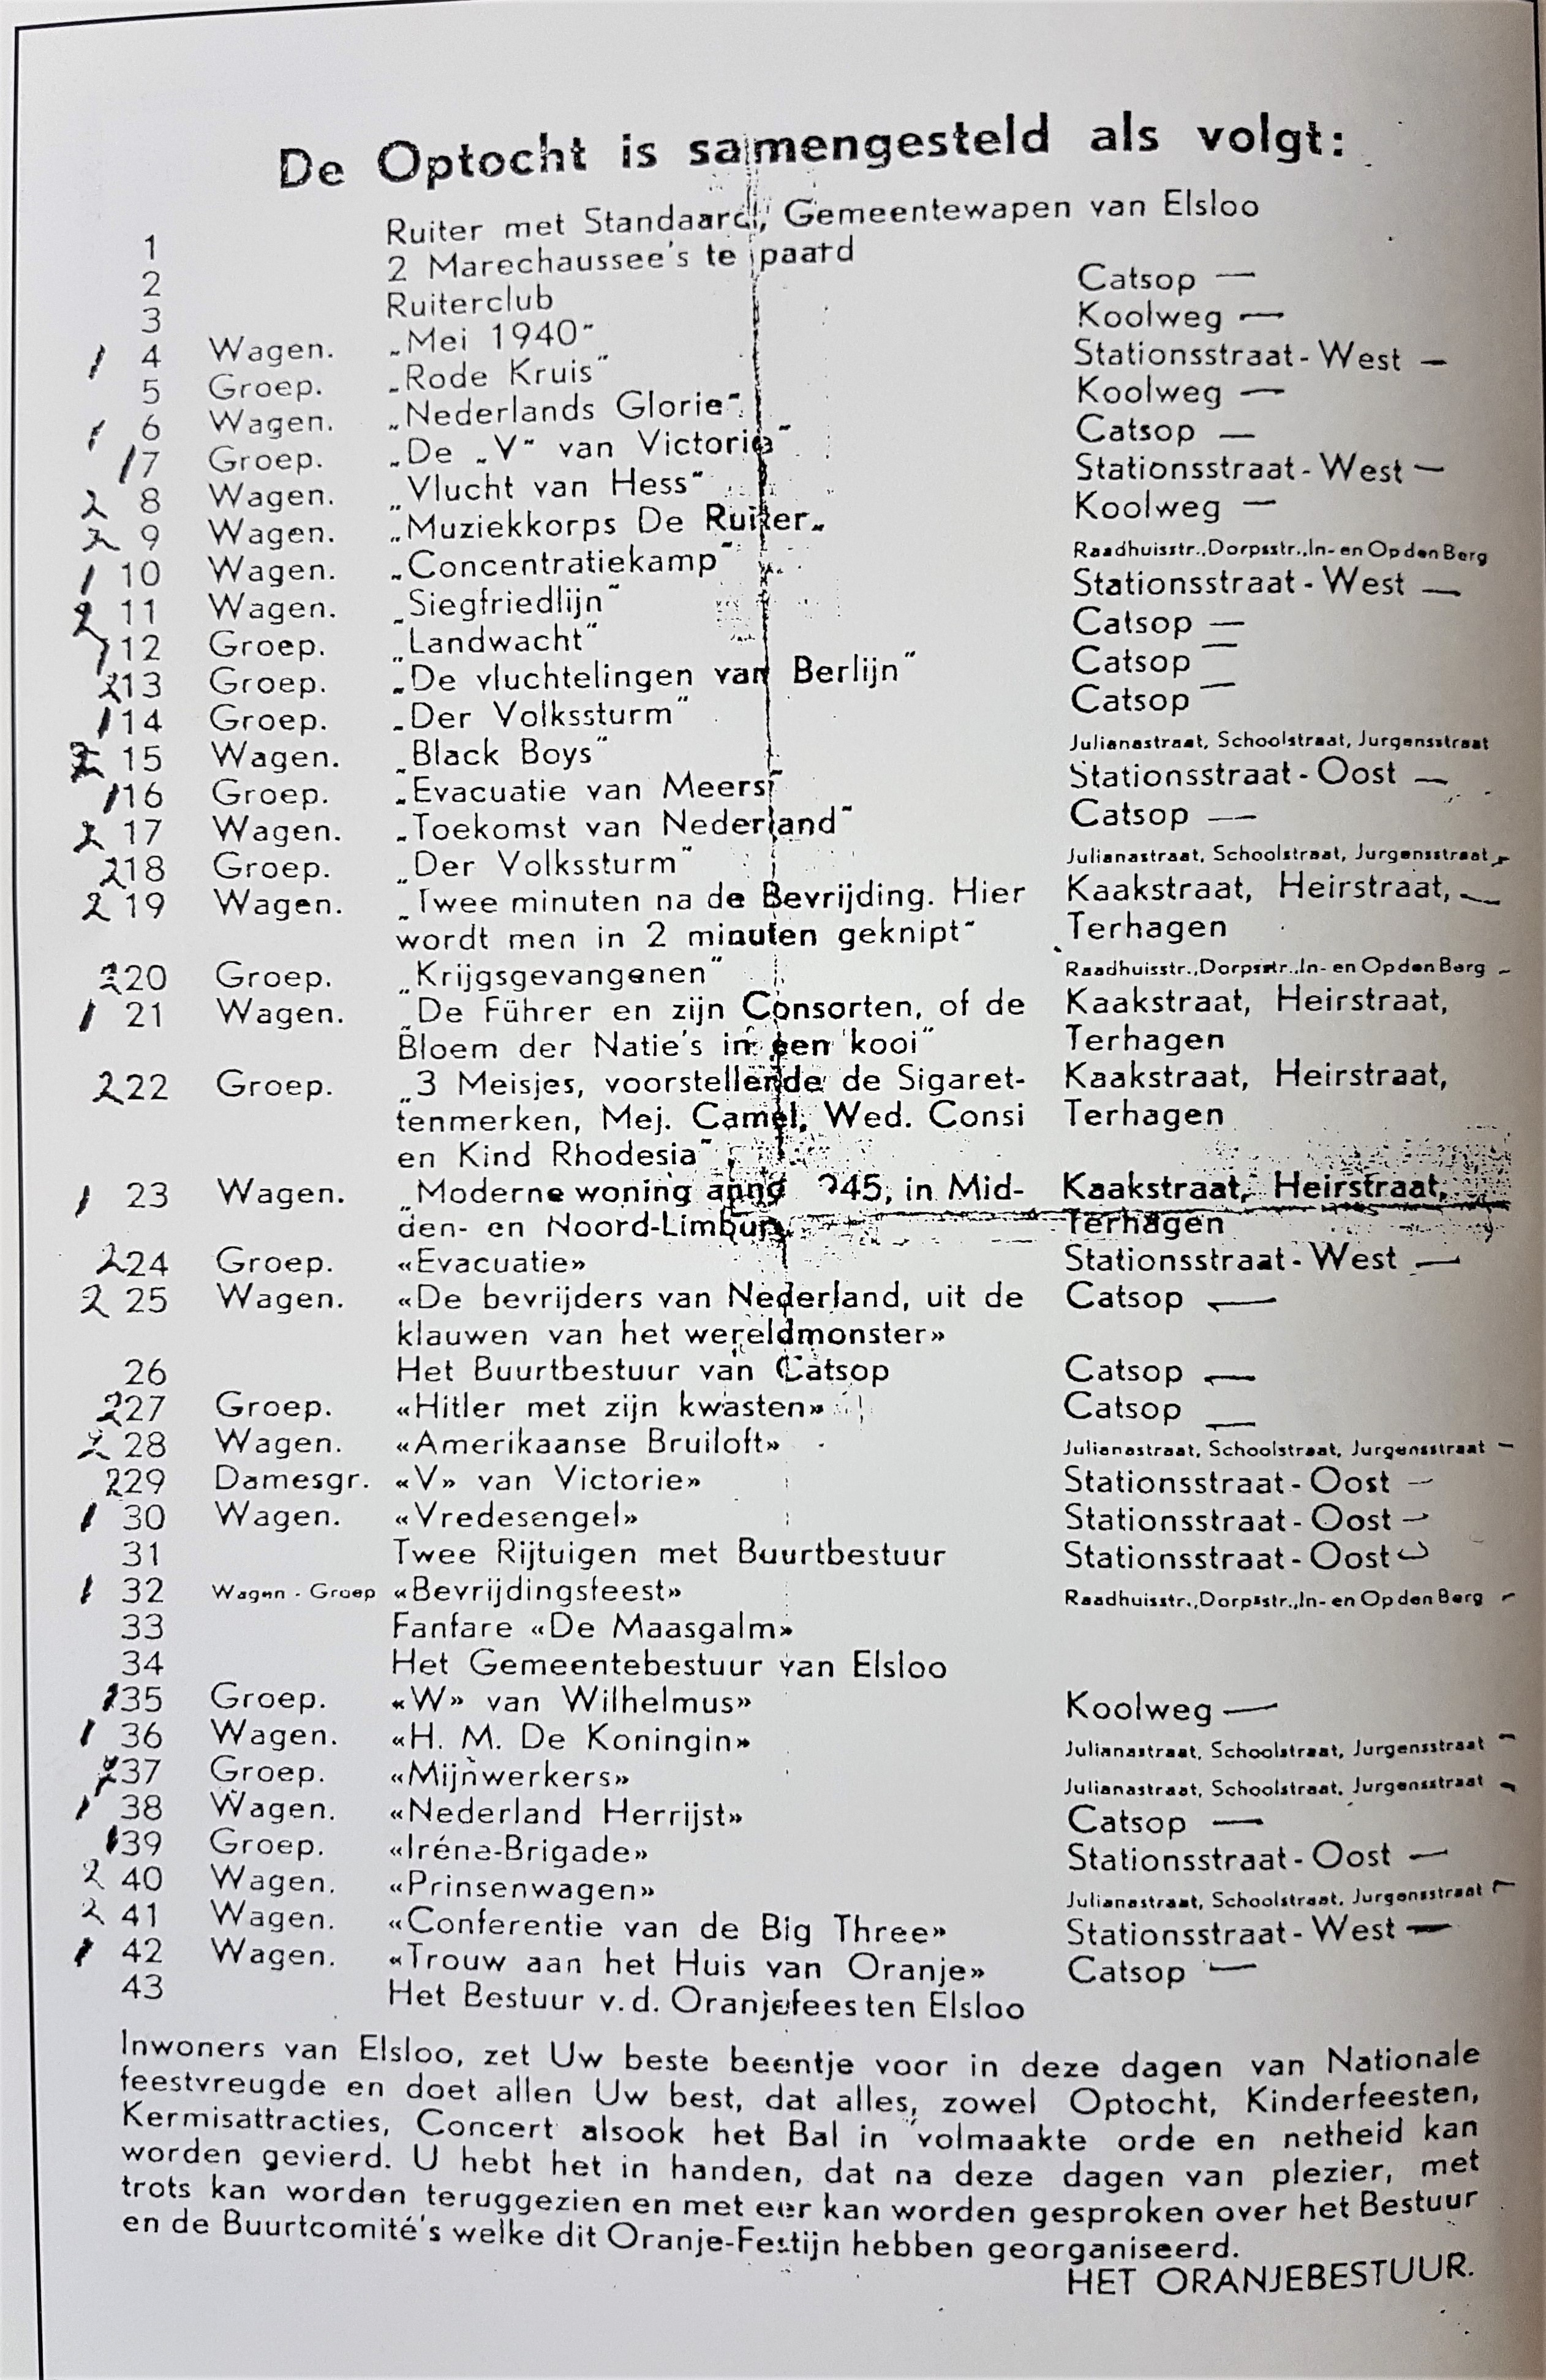 De Optocht is samengesteld als volgt:
1 Ruiter met Standaard, Gemeentewapen van Elsloo
2 2 Marechaussee's te paard
3 Ruiterclub Catsop —
1 4 Wagen. „Mei 1940" Koolweg —
5 Groep. „Rode Kruis" Stationsstraat-West —
1 6 Wagen. „Nederlands Glorie" Koolweg —
1 7 Groep. „De „V" van Victorie" Catsop —
2 8 Wagen. „Vlucht van Hess" Stationsstraat-West —
2 9 Wagen. „Muziekkorps De Ruiter„ Koolweg —
1 10 Wagen. „Concentratiekamp" Raadhuisstr.,Dorpsstr.,In- en Op den Berg
2 11 Wagen. „Siegfriedlijn" Stationsstraat-West —
1 12 Groep. „Landwacht" Catsop —
2 13 Groep. „De vluchtelingen van Berlijn" Catsop —
1 14 Groep. „Der Volkssturm" Catsop —
2 15 Wagen. „Black Boys" Julianastraat, Schoolstraat, Jurgensstraat
1 16 Groep. „Evacuatie van Meers" Stationsstraat-Oost —
2 17 Wagen. „Toekomst van Nederland" Catsop —
2 18 Groep. „Der Volkssturm" Julianastraat, Schoolstraat, Jurgensstraat -
2 19 Wagen. „Twee minuten na de Bevrijding. Hier Kaakstraat, Heirstraat, —
wordt men in 2 minuten geknipt" Terhagen
2 20 Groep. „Krijgsgevangenen" Raadhuisstr.,Dorpsstr.,In- en Op den Berg -
1 21 Wagen. „De Führer en zijn Consorten, of de Kaakstraat, Heirstraat,
Bloem der Natie's in een kooi" Terhagen
2 22 Groep. „3 Meisjes, voorstellende de Sigaret- Kaakstraat, Heirstraat,
tenmerken, Mej. Camel, Wed. Consi Terhagen
en Kind Rhodesia"
1 23 Wagen. „Moderne woning anno 945, in Mid- Kaakstraat, Heirstraat,
den- en Noord-Limburg Terhagen
2 24 Groep. «Evacuatie» Stationsstraat-West —
2 25 Wagen. «De bevrijders van Nederland, uit de Catsop —
klauwen van het wereldmonster»
26 Het Buurtbestuur van Catsop Catsop —
2 27 Groep. «Hitler met zijn kwasten» Catsop —
2 28 Wagen. «Amerikaanse Bruiloft» Julianastraat, Schoolstraat, Jurgensstraat -
2 29 Damesgr. «V» van Victorie» Stationsstraat-Oost —
1 30 Wagen. «Vredesengel» Stationsstraat-Oost —
31 Twee Rijtuigen met Buurtbestuur Stationsstraat-Oost
1 32 Wagen - Groep «Bevrijdingsfeest» Raadhuisstr.,Dorpsstr.,In- en Op den Berg -
33 Fanfare «De Maasgalm»
34 Het Gemeentebestuur van Elsloo
1 35 Groep. «W» van Wilhelmus» Koolweg —
1 36 Wagen. «H. M. De Koningin» Julianastraat, Schoolstraat, Jurgensstraat -
2 37 Groep. «Mijnwerkers» Julianastraat, Schoolstraat, Jurgensstraat -
1 38 Wagen. «Nederland Herrijst» Catsop —
1 39 Groep. «Iréne-Brigade» Stationsstraat-Oost —
2 40 Wagen. «Prinsenwagen» Julianastraat, Schoolstraat, Jurgensstraat -
2 41 Wagen. «Conferentie van de Big Three» Stationsstraat-West —
1 42 Wagen. «Trouw aan het Huis van Oranje» Catsop —
43 Het Bestuur v.d. Oranjefeesten Elsloo
Inwoners van Elsloo, zet Uw beste beentje voor in deze dagen van Nationale
feestvreugde en doet allen Uw best, dat alles, zowel Optocht, Kinderfeesten,
Kermisattracties, Concert alsook het Bal in volmaakte orde en netheid kan
worden gevierd. U hebt het in handen, dat na deze dagen van plezier, met
trots kan worden teruggezien en met eer kan worden gesproken over het Bestuur
en de Buurtcomité's welke dit Oranje-Festijn hebben georganiseerd.
HET ORANJEBESTUUR.